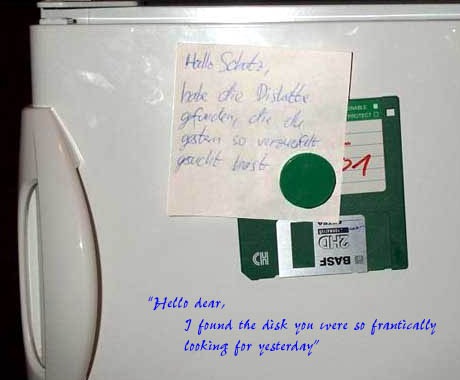 Hallo Schatz,
habe die Diskette
gefunden, die du
gestern so verzweifelt
gesucht hast.
ENABLE
PROTECT
1
BASF
2HD
HD
"Hello dear,
I found the disk you were so frantically
looking for yesterday"